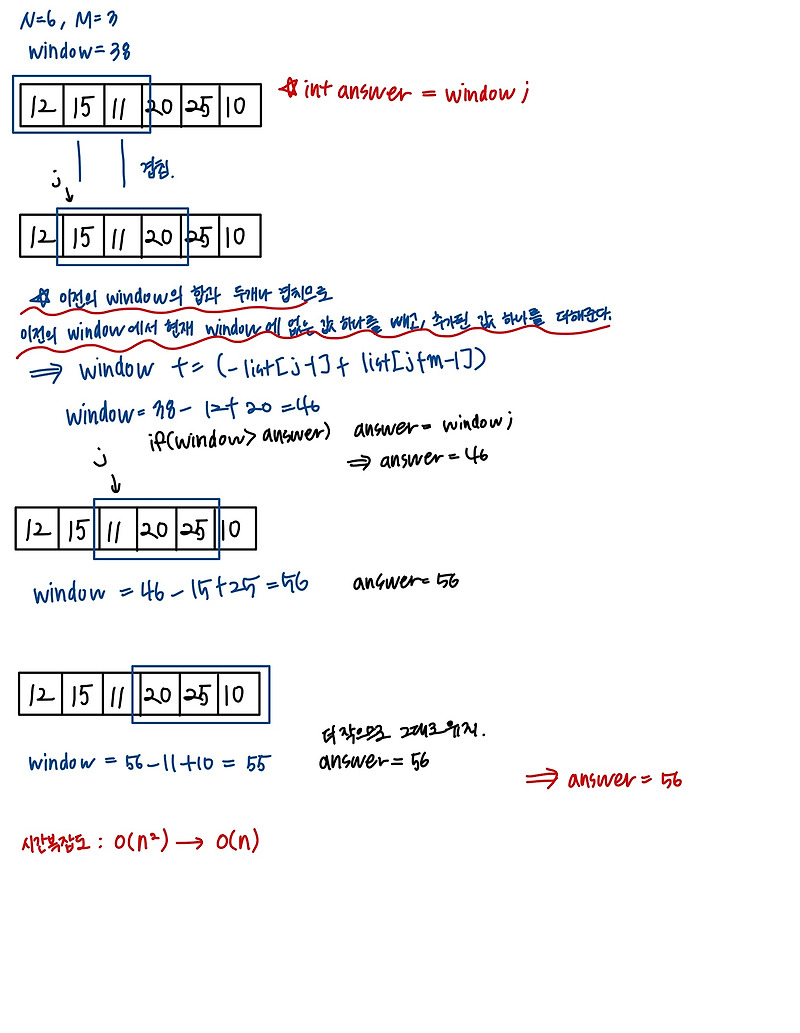 N=6, M=3
window=38
12 15 11 20 25 10
☆ int answer = window;
겹침.
j
12 15 11 20 25 10
☆ 이전의 window의 합과 두개나 겹치므로
이전의 window에서 현재 window에 없은 값 하나를 빼고, 추가된 값 하나를 더해준다.
⇒ window += (-list[j-1]+ list[j+m-1])
window= 38 - 12+ 20 =46
if(window> answer) answer= window;
⇒ answer = 46
j
12 15 11 20 25 10
window = 46 - 15+25 =56
answer= 56
12 15 11 20 25 10
더 작으므로 그대로 유지.
window = 56-11+10 = 55
answer= 56
⇒ answer= 56
시간복잡도 : O(n²) → O(n)